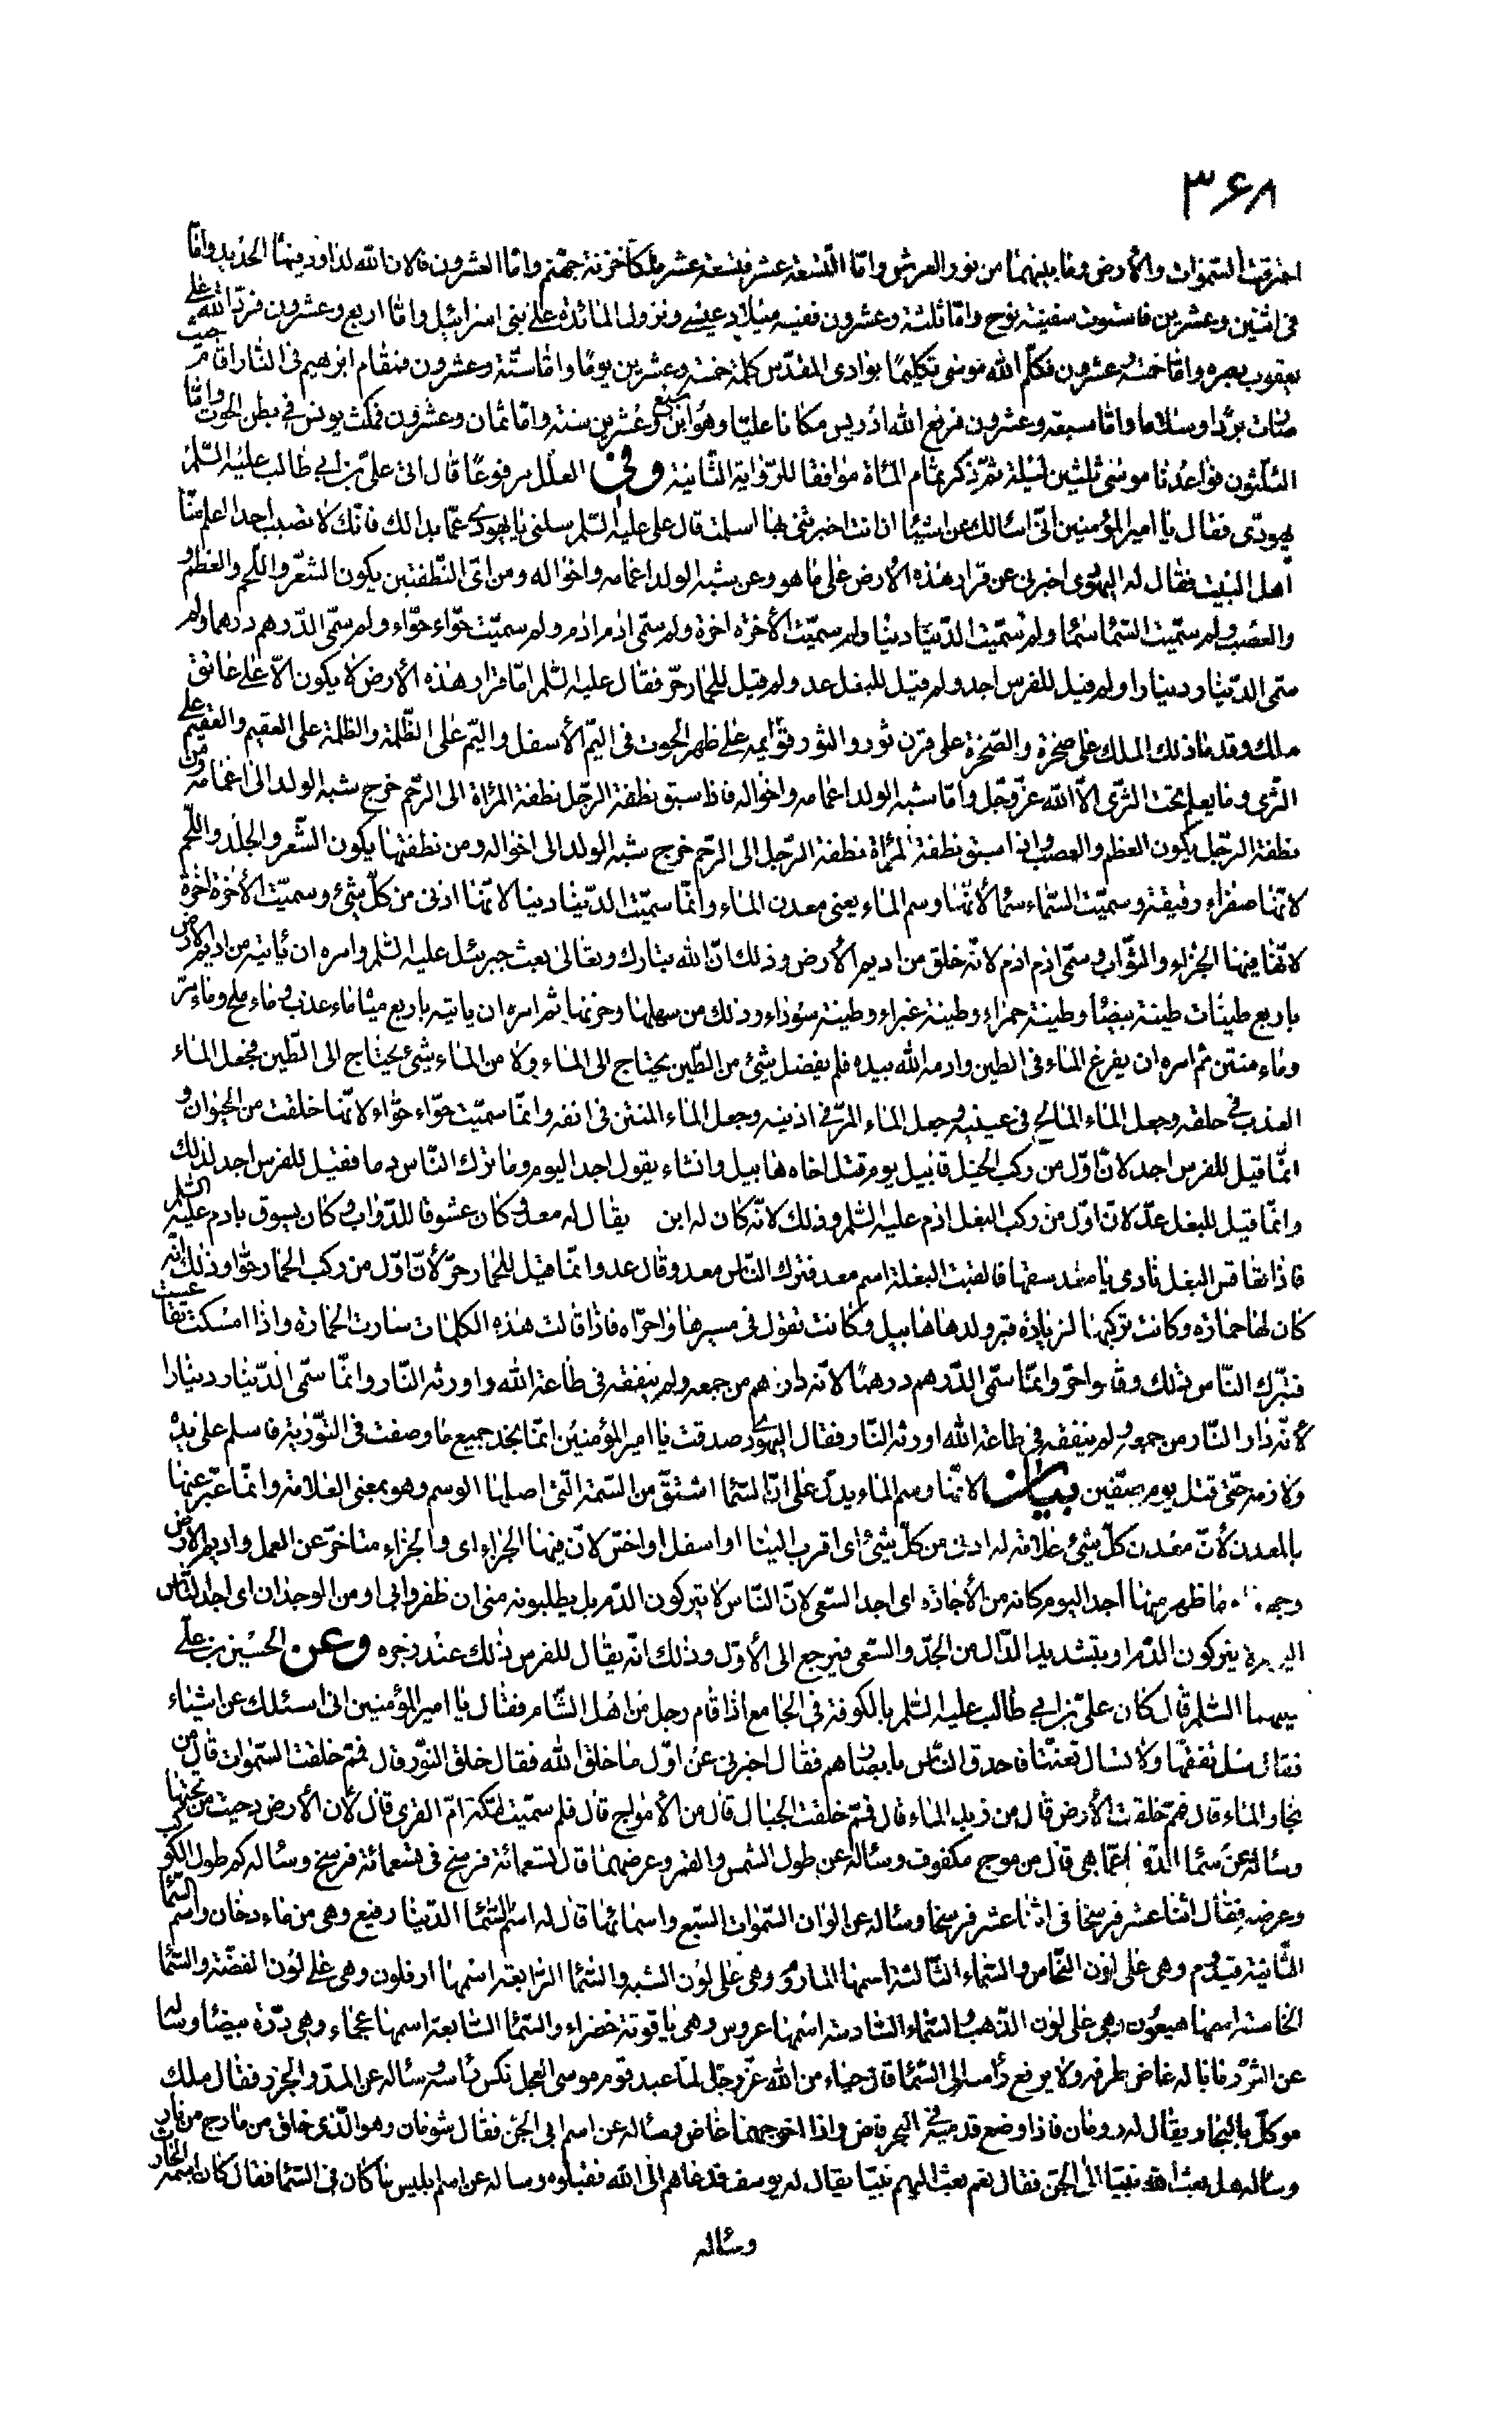 ٣۶٨
احترقت السموات والأرض وما بينهما من نور العرش وامّا التسعة عشر فتسعة عشر ملكا خزنة جهنم وامّا العشرون فالان الله لداود فيهما الحديد وامّا
فى اثنين وعشرين فاستوت سفينة نوح وامّا ثلثة وعشرون ففيه ميلاد عيسى ونزول المائدة على بنى اسرائيل وامّا اربع وعشرون فردّ الله على
يعقوب بصره وامّا خمسة وعشرون فكلّم الله موسى تكليمًا بوادى المقدّس كلمه خمسة وعشرين يومًا وامّا ستّة وعشرون فمقام ابرهيم فى النار اقام حيث
صارت بردًا وسلاما وامّا سبعة وعشرون فرفع الله ادريس مكانا عليّا وهو ابن سبع وعشرين سنة وامّا ثمان وعشرون فمكث يونس فى بطن الحوت وامّا
الثلثون فواعدنا موسى ثلثين ليلة ثمّ ذكر تمام المائة موافقا للرّواية الثّانية وفى العلل مرفوعًا قال اتى علىّ بن ابي طالب عليه السّلم
يهودّى فقال يا امير المؤمنين انّى اسألك عن اشياء ان انت اخبرتنى بها اسلمت قال على عليه السّلم سلنى يا يهودى عمّا بدا لك فانّك لا تصيب احدا اعلم منّا
أهل البيت فقال له اليهودى اخبرنى عن قرار هذه الأرض على ما هو وعن شبه الولد اعمامه واخواله ومن اىّ النّطفتين يكون الشعر واللّحم والعظم و
والعصب ولم سمّيت السّماء سماء ولم سمّيت الدّنيا دنيا ولم سميّت الأخرة اخرة ولم سمّى ادم ادم ولم سميّت حوّاء حوّاء ولم سمّى الدّرهم درهما ولم
سمّى الدّينار دينارا ولم قيل للفرس اجد ولم قيل للبغل عد ولم قيل للحمار حرّ فقال عليه السّلم امّا قرار هذه الأرض لا يكون الّا على عاتق
ملك وقدما ذلك الملك على صخرة والصّخرة على قرن ثور والثور قوائمه على ظهر الحوت فى اليمّ الأسفل واليّم على الظّلمة والظلمة على العقيم والعقيم على
الثرى وما يعلم تحت الثرى الّا الله عزّ وجلّ وامّا شبه الولد اعمامه واخواله فاذا سبق نطفة الرجل نطفة المرأة الى الرّحم خرج شبه الولد الى اعمامه ومن
نطفة الرّجل يكون العظم والعصب واذا سبق نطفة المرأة نطفة الرّجل الى الرّحم خرج شبه الولد الى اخواله ومن نطفتها يكون الشّعر والجلد واللّحم
لانّها صفراء رقيقة وسميّت السّماء سماء لأنّها وسم الماء يعنى معدن الماء وانّما سميّت الدّنيا دنيا لانّها ادنى من كلّ شئ وسميّت الأخرة اخرة
لانّ فيها الجزاء والثّواب وسمّى ادم ادم لانّه خلق من اديم الأرض وذلك انّ الله تبارك وتعالى بعث جبرئيل عليه السّلم وامره ان يأتيه من اديم الأرض
باربع طينات طينة بيضاء وطينة حمراء وطينة غبراء وطينة سوداء وذلك من سهلها وحزنها ثم امره ان ياتيه باربع مياه ماء عذب وماء ملح وماء مرّ
وماء منتن ثم امره ان يفرغ الماء فى الطين وادمه الله بيده فلم يفضل شئ من الطّين يحتاج الى الماء ولا من الماء شئ يحتاج الى الطّين فجعل الماء
العذب فى حلقه وجعل الماء المالح فى عينيه وجعل الماء المرّ فى اذنيه وجعل الماء المنتن فى انفه وانّما سميّت حوّاء حوّاء لانّها خلقت من الحيوان و
انّما قيل للفرس اجد لانّ اوّل من ركب الخيل قابيل يوم قتل اخاه هابيل وانشاء يقول اجد اليوم وما ترك النّاس دما فقيل للفرس اجد لذلك
وانّما قيل للبغل عدّ لانّ اوّل من ركب البغل ادم عليه السّلم وذلك لانّه كان له ابن يقال له معد وكان عشوقا للدّواب وكان يسوق بادم عليه السّلم
فاذا تقاعس البغل نادى يا معد سقها فالفت البغلة اسم معد فترك النّاس معد وقال عد وانّما قيل للحمار حرّ لأنّ اوّل من ركب الحمار حوّا وذلك انّه
كان لها حمارة وكانت تركبها لزيارة قبر ولدها هابيل وكانت تقول فى مسيرها واحرّاه فاذا قالت هذه الكلمات سارت الحمارة واذا امسكت تقاعست
فترك النّاس ذلك وقالوا حرّ وانّما سمّى الدّرهم درهمًا لانّه دار هم من جمعه ولم ينفقه فى طاعة الله واورثه النّار وانّما سمّى الدّينار دينارا
لأنّه دار النّار من جمعه ولم ينفقه فى طاعة الله اورثه النّار فقال اليهودى صدقت يا امير المؤمنين انّما نجد جميع ما وصفت فى التّورية فاسلم على يده
ولازمه حتّى قتل يوم صفّين بيان لانّها وسم الماء يدلّ على انّ السّماء اشتقّ من السّمة الّتى اصلها الوسم وهو بمعنى العلامة وانّما عبّر عنها
بالمعدن لأنّ معدن كلّ شئ علامة له ادنى من كلّ شئ اى اقرب الينا او اسفل او اخسّ لانّ فيها الجزاء اى والجزاء متاخرّ عن العمل واديم الأرض
وجهها ما ظهر منها اجد اليوم كانه من الأجادة اى اجد السّعى لانّ النّاس لا يتركون الدّم بل يطلبونه منى ان ظفروا بى او من الوجدان اى اجد النّاس
اليوم لا يتركون الدّم او بتشديد الدّال من الجدّ والسّعى فيرجع الى الأوّل وذلك انّه يقال للفرس ذلك عند زجره وعن الحسين بن علىّ
عليهما السّلم قال كان علىّ بن ابي طالب عليه السّلم بالكوفة فى الجامع اذا قام رجل من اهل الشّام فقال يا امير المؤمنين انى اسئلك عن اشياء
فقال سل تفقّها ولا تسال تعنّتا فاحدق النّاس بابصارهم فقال اخبرنى عن اوّل ما خلق الله فقال خلق النّور قال فممّ خلقت السّموات قال من
بخار الماء قال فممّ خلقت الأرض قال من زبد الماء قال فممّ خلقت الجبال قال من الأمواج قال فلم سميّت مكّة امّ القرى قال لأن الأرض دحيت من تحتها
وساله عن سماء الدّنيا ممّا هى قال من موج مكفوف وساله عن طول الشمس والقمر وعرضهما قال تسعمائة فرسخ فى تسعمائة فرسخ وساله كم طول الكوكب
وعرضه فقال اثنا عشر فرسخا فى اثنا عشر فرسخا وساله عن الوان السّموات السّبع واسمائها قال له اسم السّماء الدّنيا رفيع وهى من ماء دخان واسم السّماء
الثّانية قيدوم وهى على لون النحّاس والسّماء الثّالثة اسمها الماروم وهى على لون الشبه والسّماء الرّابعة اسمها ارفلون وهى على لون الفضّة والسّماء
الخامسة اسمها هيعون وهى على لون الذّهب والسّماء السّادسة اسمها عروس وهى ياقوتة خضراء والسّماء السّابعة اسمها عجماء وهى درّة بيضاء وساله
عن الثّور ما باله غاض طرفه ولا يرفع رأسه الى السّماء قال حياء من الله عزّ وجلّ لمّا عبد قوم موسى العجل نكس رأسه وساله عن المدّ والجزر فقال ملك
موكّل بالبحار يقال له رومان فاذا وضع قدميه فى البحر فاض واذا اخرجهما غاض وساله عن اسم ابى الجنّ فقال شومان وهو الّذى خلق من مارج من نار
وساله هل بعث الله نبيّا الى الجنّ فقال نعم بعث اليهم نبيّا يقال له يوسف فدعاهم الى الله فقتلوه وساله عن اسم ابليس ما كان فى السّماء فقال كان اسمه الحارث
وساله